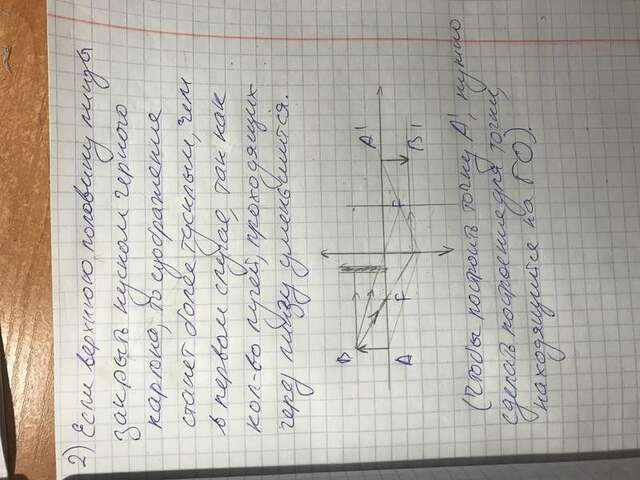 2) Если верхнюю половину линзы
закрыть куском черного
картона, то изображение
станет более тусклым, чем
в первом случае, так как
кол-во лучей, проходящих
через линзу уменьшится.
B
A
F
F
A'
B'
(Чтобы построить точку A', нужно
сделать построение для точки,
находящийся на ГО).